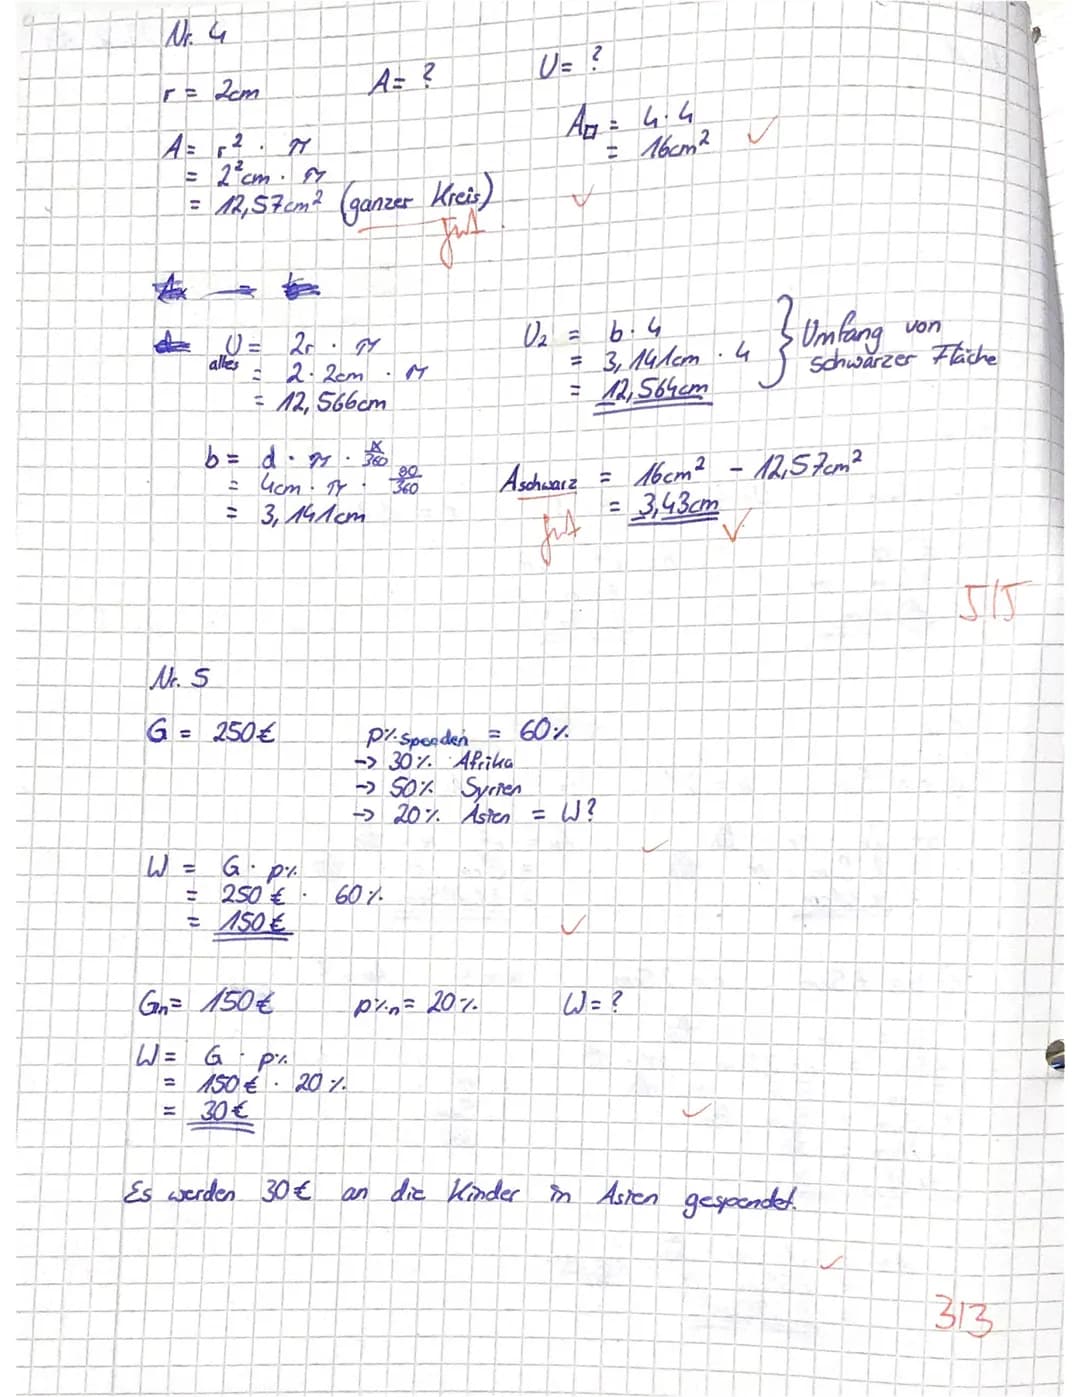 Nr. 4
r = 2cm A= ? U= ?
A= r² · π
= 2²cm · π
= 12,57cm² (ganzer Kreis)
gut
A□ = 4·4
= 16cm²
U alles = 2r · π
= 2·2cm · π
= 12,566cm
U₂ = b·4
= 3,141cm · 4
= 12,564cm
} Umfang von
schwarzer Fläche
b = d · π · α/360
= 4cm · π · 90/360
= 3,141cm
A schwarz = 16cm² - 12,57cm²
= 3,43cm
gut
5/5
Nr. 5
G = 250€ p% spenden = 60%
-> 30% Afrika
-> 50% Syrien
-> 20% Asien = W?
W = G · p%
= 250€ · 60%
= 150€
Gn= 150€ p%n= 20% W=?
W= G · p%
= 150€ · 20%
= 30€
Es werden 30€ an die Kinder in Asien gespendet.
3/3